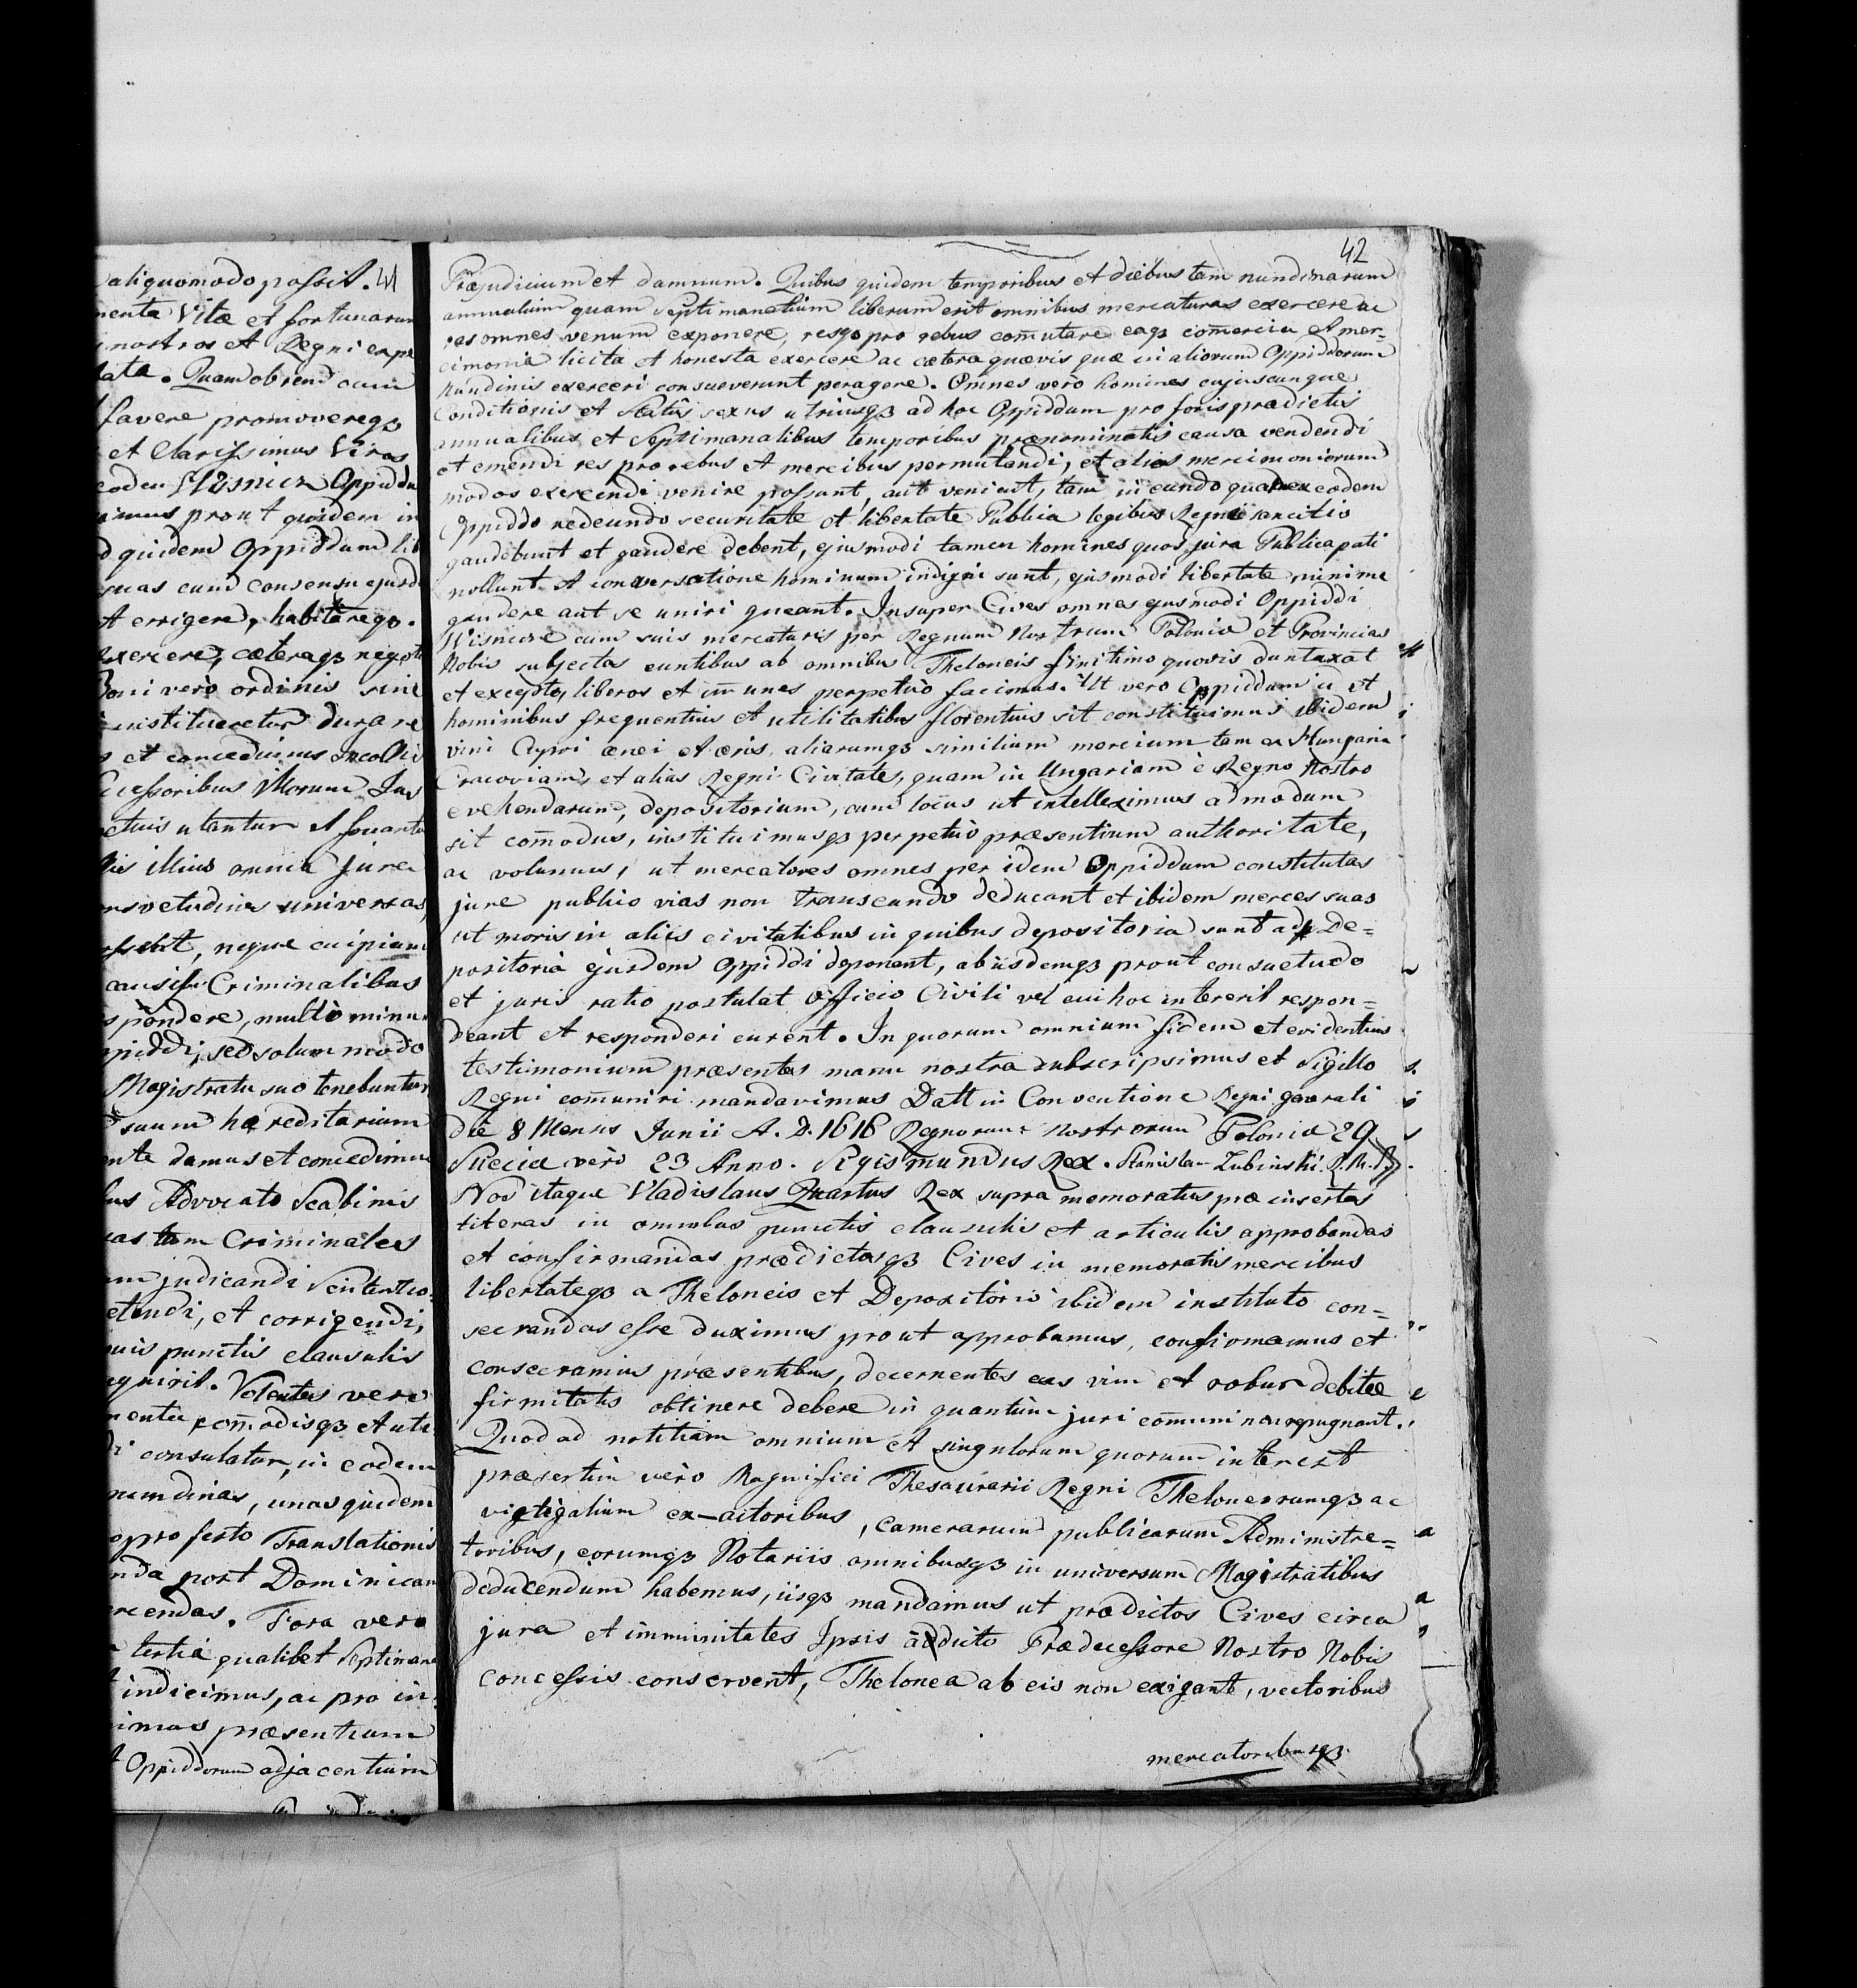 aliquomodo possit. 41
menta Vitæ et fortunarum
nostros et Regni expe
lata. Quamobrem cum
favere promovereq3
et Clarissimus Viros
eodem Wisnicz Oppiddu
imus prout quidem in
d quidem Oppiddum lib
quas cum consensu ejusd
et errigere, habitareq3.
exercere, cæteraq3 negoti
Boni verò ordinis sine
institueretur durare
s et concedimus incolis
ccessoribus illorum Jus
etuis utantur et fruantu
lis illius omnia jura
onsvetudines universas,
essent, neque cuipiam
causis Criminalibus
spondere, multò minus
ppiddi, sed solummodo
Magistratu suo tenebuntur
suum hæreditarium
ente damus et concedimus
bus Advocato Scabinis
uas tam Criminales
um judicandi Sententio
etendi, et corrigendi,
uis punctis clausulis
equirit. Volentes vero
menta comodisq3 et uti
di consulatur, in eodem
nundinas, unas quidem
e pro festo Translationis
nda post Dominicam
ercendas. Fora vero
tertia qualibet Septimana
t indicimus, ac pro in
imus præsentium
t Oppiddorum adjacentium
42
Præjudicium et damnum. Quibus quidem temporibus et diebus tam nundinarum
annualium quam Septimanalium liberum erit omnibus mercaturas exercere ac
res omnes venum exponere, resq3 pro rebus com̄utare eaq3 com̄ercia et mer-
cimonia licita et honesta exercere ac cætera quævis quæ in aliorum Oppiddorum
nundinis exerceri consueverunt peragere. Omnes verò homines cujuscunque
Conditionis et Statûs sexus utriusq3 ad hoc Oppiddum pro foris prædictis
annualibus et Septimanalibus temporibus prænominatis causa vendendi
et emendi res pro rebus et mercibus permutandi, et alios mercimoniorum
modos exercendi venire possunt, aut veniunt, tam in eundo quam ex eodem
Oppiddo redeundo securitate et libertate Publica legibus Regni sancitis
gaudebunt et gaudere debent, ejusmodi tamen homines quos jura Publica pati
nollunt et conversatione hominum indigni sunt, ejusmodi libertate minime
gaudere aut se uniri queant. Insuper Cives omnes ejusmodi Oppiddi
Wisnicze cum suis mercaturis per Regnum Nostrum Poloniæ et Provincias
Nobis subjectas euntibus ab omnibus Theloneis finitimo quovis duntaxat
et excepto, liberos et im̄unes perpetuò facimus. Ut vero Oppiddum id et
hominibus frequentius et utilitatibus florentius sit constituimus ibidem
vini Cypri ænei et æris, aliarumq3 similium mercium tam ex Hungaria
Cracoviam, et alias Regni Civitates, quam in Ungariam è Regno Nostro
evehendarum, depositorium, cum locus ut intelleximus admodum
sit com̄odus, instituimusq3 perpetuò præsentium authoritate,
ac volumus, ut mercatores omnes per idem Oppiddum constitutas
jure publico vias non transeundo deducant et ibidem merces suas
ut moris in aliis civitatibus in quibus depositoria sunt ad De=
positoria ejusdem Oppiddi deponent, ab iisdemq3 prout consuetudo
et juris ratio postulat officio Civili vel cui hoc intererit respon=
deant et responderi curent. In quorum omnium fidem et evidentius
testimonium præsentes manu nostra subscripsimus et Sigillo
Regni com̄uniri mandavimus Datt in Conventione Regni generali
die 8 Mensis Junii A. D. 1616 Regnorum Nostrorum Poloniæ 29
Sueciæ verò 23 Anno. Sigismundus Rex. Stanislaus Lubinski. R. M.
Nos itaque Vladislaus Quartus Rex supra memoratus præinsertas
literas in omnibus punctis clausulis et articulis approbandas
et confirmandas prædictosq3 Cives in memoratis mercibus
libertateq3 a Theloneis et Depositorio ibidem instituto con=
secrandas esse duximus prout approbamus, confirmamus et
consecramus præsentibus, decernentes eas vim et robur debitæ
firmitatis obtinere debere in quantùm juri com̄uni non repugnant.
Quod ad notitiam omnium et singulorum quorum interest
præsertim vèro Magnifici Thesaurarii Regni Theloneorumq3 ac
vigtigalium ex-actoribus, camerarum publicarum Administra=
toribus, eorumq3 Notariis omnibusq3 in universum Magistratibus
deducendum habemus, iisq3 mandamus ut prædictos Cives circa
jura et immunitates Ipsis a dicto Prædecessore Nostro Nobis
concessis conservent, Thelonea ab eis non exigant, vectoribus
mercatoribusq3